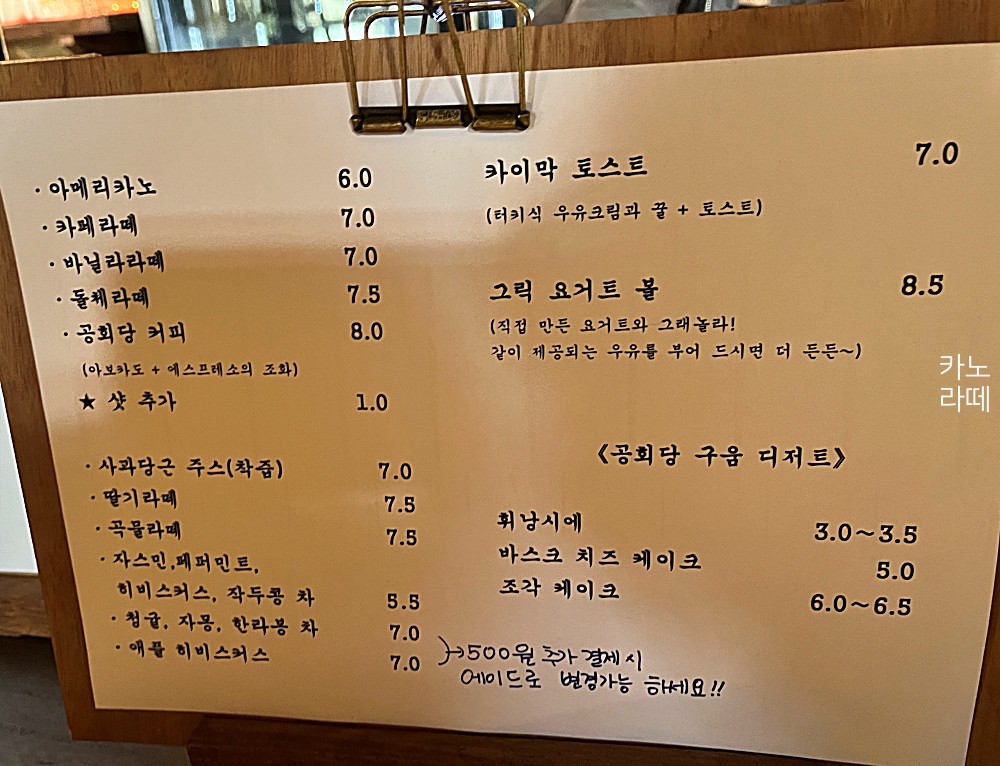 · 아메리카노 6.0
· 카페라떼 7.0
· 바닐라라떼 7.0
· 돌체라떼 7.5
· 공회당 커피 8.0
(아보카도 + 에스프레소의 조화)
★ 샷 추가 1.0
· 사과당근 주스(착즙) 7.0
· 딸기라떼 7.5
· 곡물라떼 7.5
· 자스민,페퍼민트,
히비스커스, 작두콩 차 5.5
· 청귤, 자몽, 한라봉 차 7.0
· 애플 히비스커스 7.0
→500원 추가 결제 시
에이드로 변경가능 하세요!!
카이막 토스트 7.0
(터키식 우유크림과 꿀 + 토스트)
그릭 요거트 볼 8.5
(직접 만든 요거트와 그래놀라!
같이 제공되는 우유를 부어 드시면 더 든든~)
《공회당 구움 디저트》
휘낭시에 3.0~3.5
바스크 치즈 케이크 5.0
조각 케이크 6.0~6.5
카노
라떼